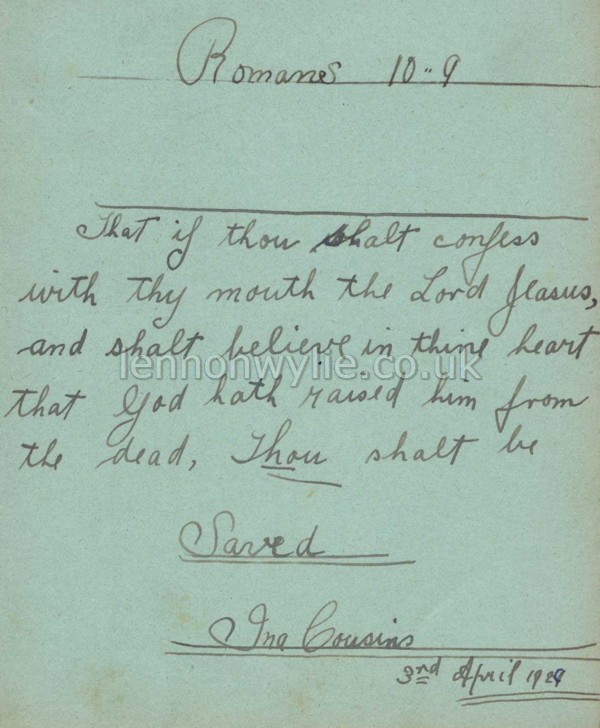 Romans 10-9
That if thou shalt confess
with thy mouth the Lord Jeasus,
and shalt believe in thine heart
lennonwylie.co.uk
that God hath raised him from
the dead, Thou shalt be
Saved
Ina Cousins
3rd April 1929